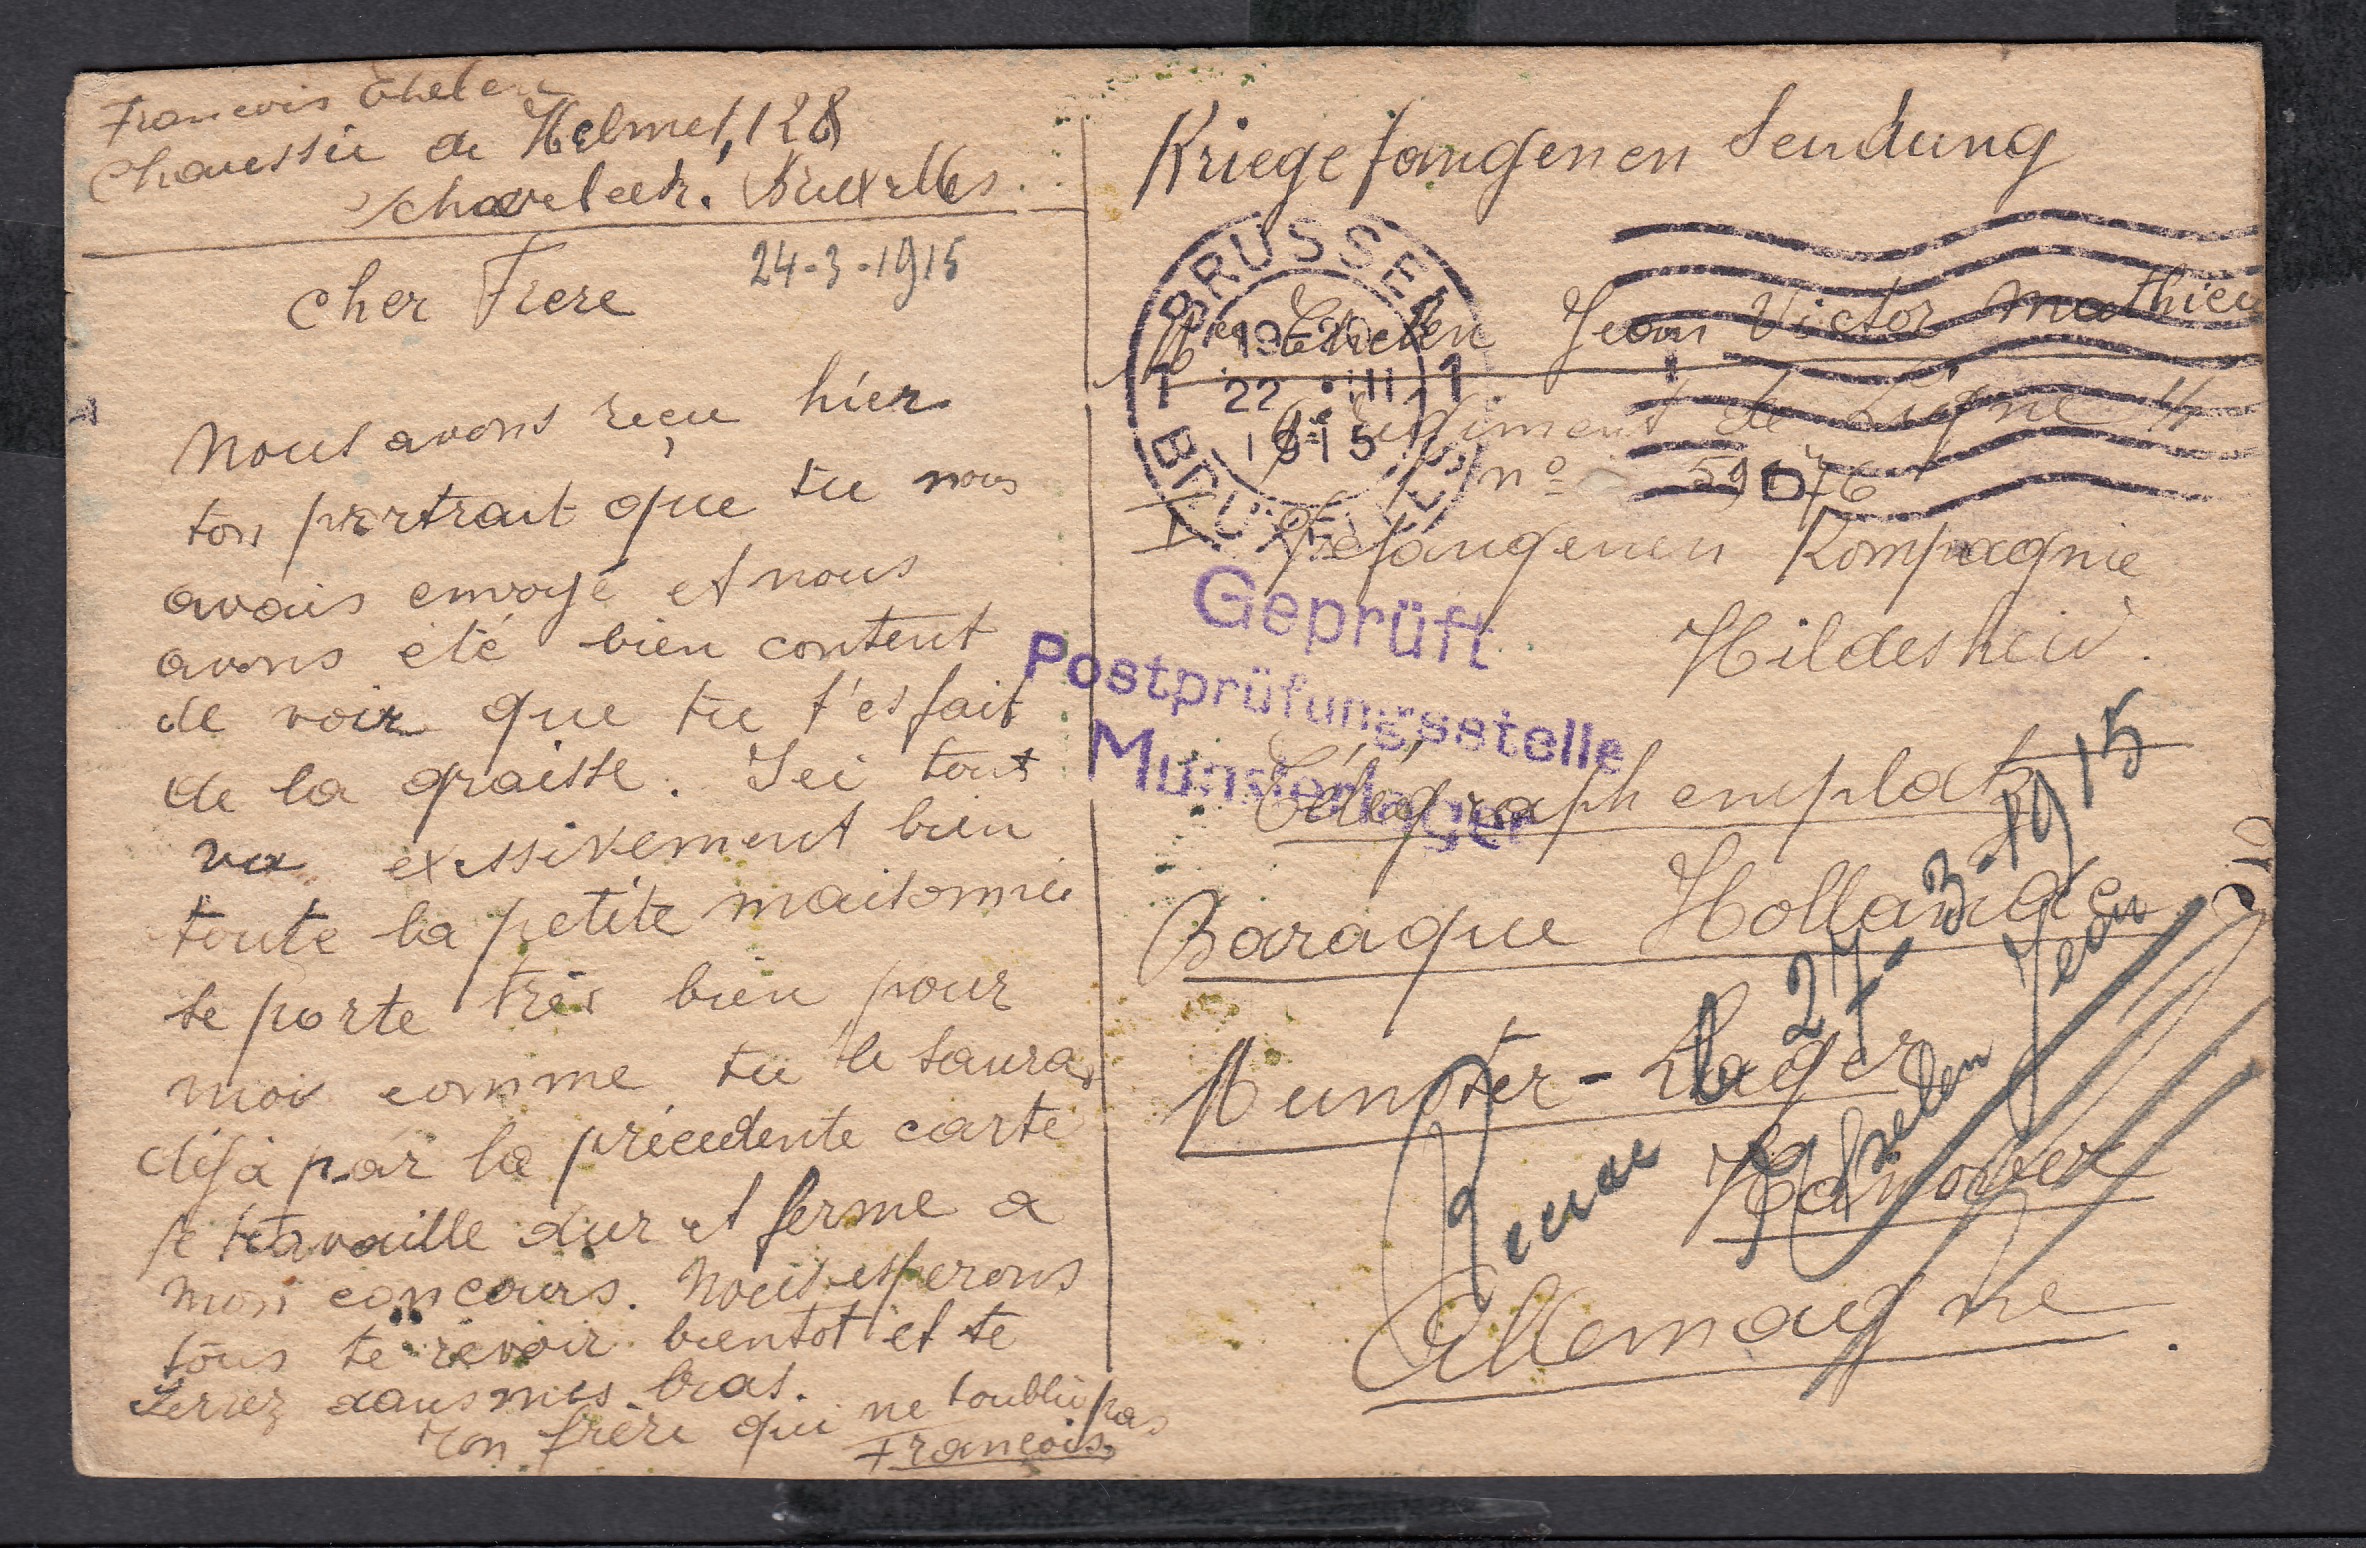 François Thelen
Chaussée de Helmet, 128
Schaerbeek. Bruxelles.
24-3-1915
Cher Frere
Nous avons reçu hier
ton portrait que tu nous
avais envoyé et nous
avons été bien content
de voir que tu t'es fait
de la graisse. Ici tout
va exessivement bien
toute la petite maisonnée
se porte très bien pour
moi comme tu le sauras
déja par la précedente carte
je travaille dur et ferme a
mon concours. Nous esperons
tous te revoir bientot et te
serrez dans mes bras.
Ton frère qui ne t'oublie pas
François.
Kriegefangenen Sendung
BRUSSEL
19-20
1 22 III 1
1915
BRUXELLES
Thelen Jean Victor Mathieu
Regiment de Ligne
nº 59176
Gefangenen Kompagnie
Hildesheid.
Geprüft
Postprüfungsstelle
Munsterlager
Télégraphenplatz
Baraque Hollandre
Munster-Lager
Hanover
Allemagne.
27-3-1915
Thelen Jean